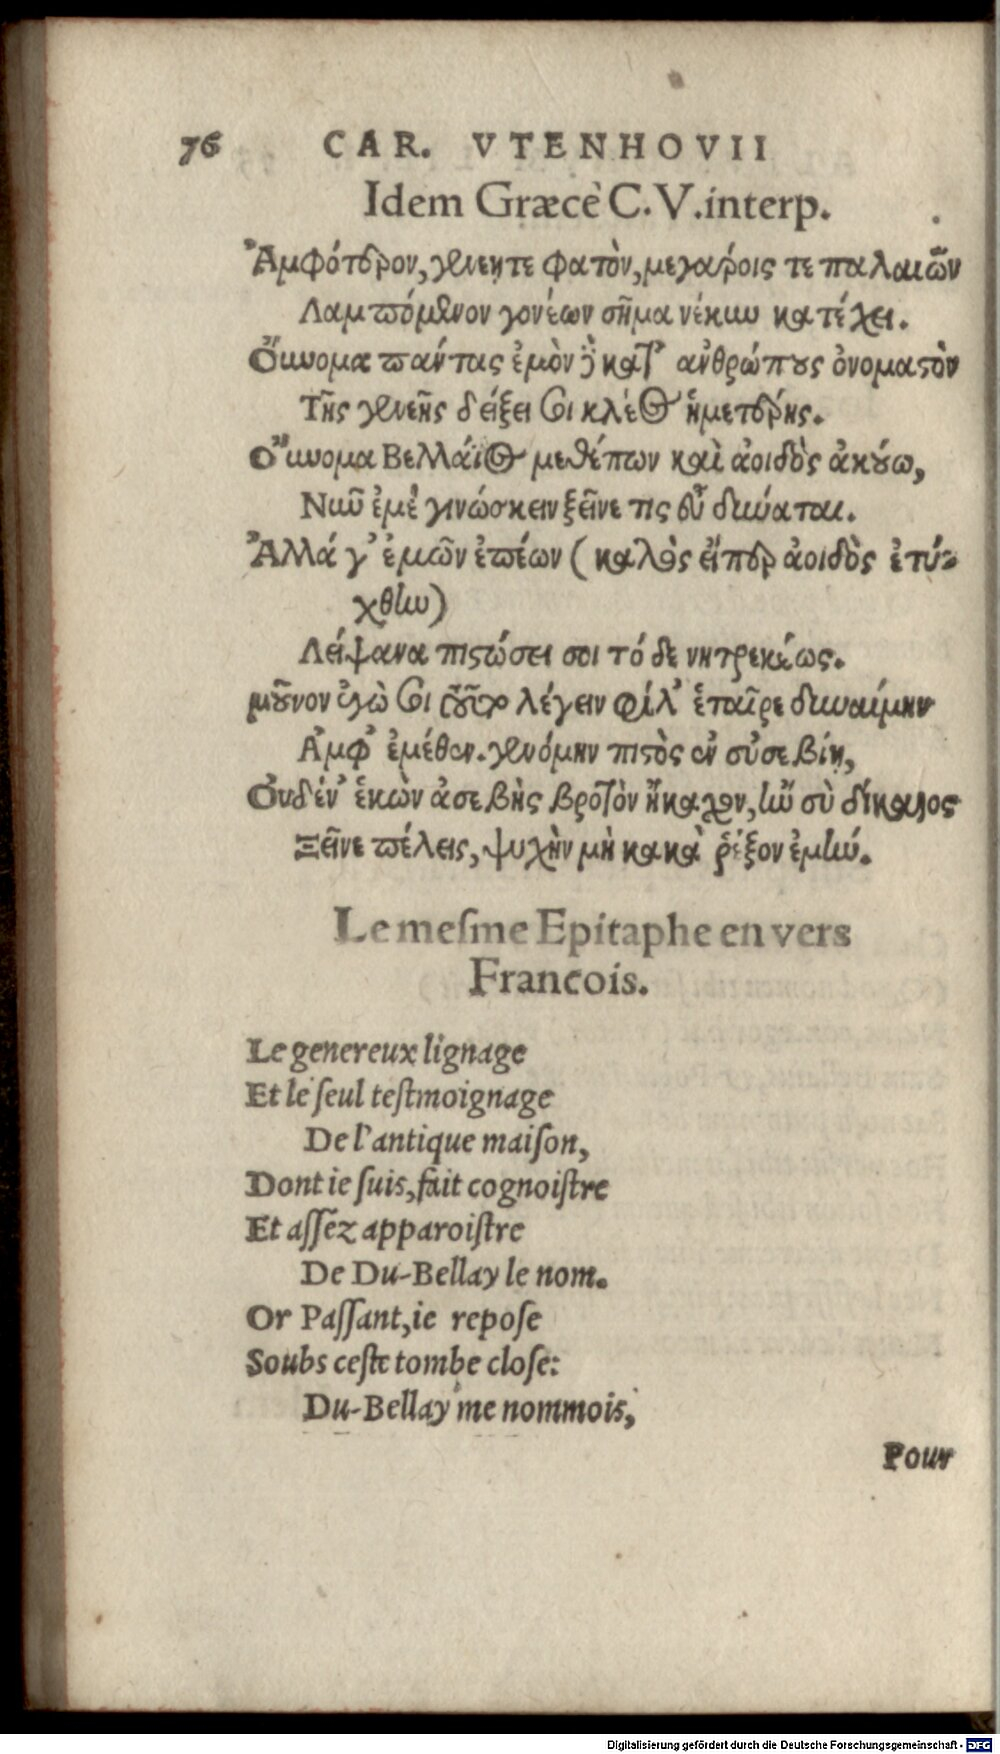 76 CAR. VTENHOVII
Idem Græcè C. V. interp.
Ἀμφότερον, γενεήτε φατὸν, μεγάροις τε παλαιῶν
Λαμπόμενον γονέων σῆμα νέκυν κατέχει.
Οὔνομα πάντας ἐμὸν κατ' ἀνθρώπους ὀνομαστὸν
Τῆς γενεῆς δείξει σοι κλέος ἡμετέρης.
Οὔνομα Βελλάϊος μεθέπων καὶ ἀοιδὸς ἀκούω,
Νῦν ἐμὲ γινώσκειν ξεῖνε τις εὖ δύναται.
Ἀλλά γ' ἐμῶν ἐπέων (καλὸς εἴπερ ἀοιδὸς ἐτύ-
χθην)
Λείψανα πιστώσει σοι τό δε νητρεκέως.
μοῦνον ἐγὼ σοι τοῦτο λέγειν φίλ' ἑταῖρε δυναίμην
Ἀμφ' ἐμέθεν. γενόμην πιστὸς ἐν εὐσεβίῃ,
Οὐδέν' ἑκὼν ἀσεβὴς βροτὸν ἤκαχον, ἢν σὺ δίκαιος
Ξεῖνε πέλεις, ψυχὴν μὴ κακὰ ῥέξον ἐμήν.
Le meſme Epitaphe en vers
Francois.
Le genereux lignage
Et le ſeul teſtmoignage
De l'antique maiſon,
Dont ie ſuis, fait cognoiſtre
Et aſſez apparoiſtre
De Du-Bellay le nom.
Or Paſſant, ie repoſe
Soubs ceſte tombe cloſe:
Du-Bellay me nommois,
Pour
Digitalisierung gefördert durch die Deutsche Forschungsgemeinschaft - DFG